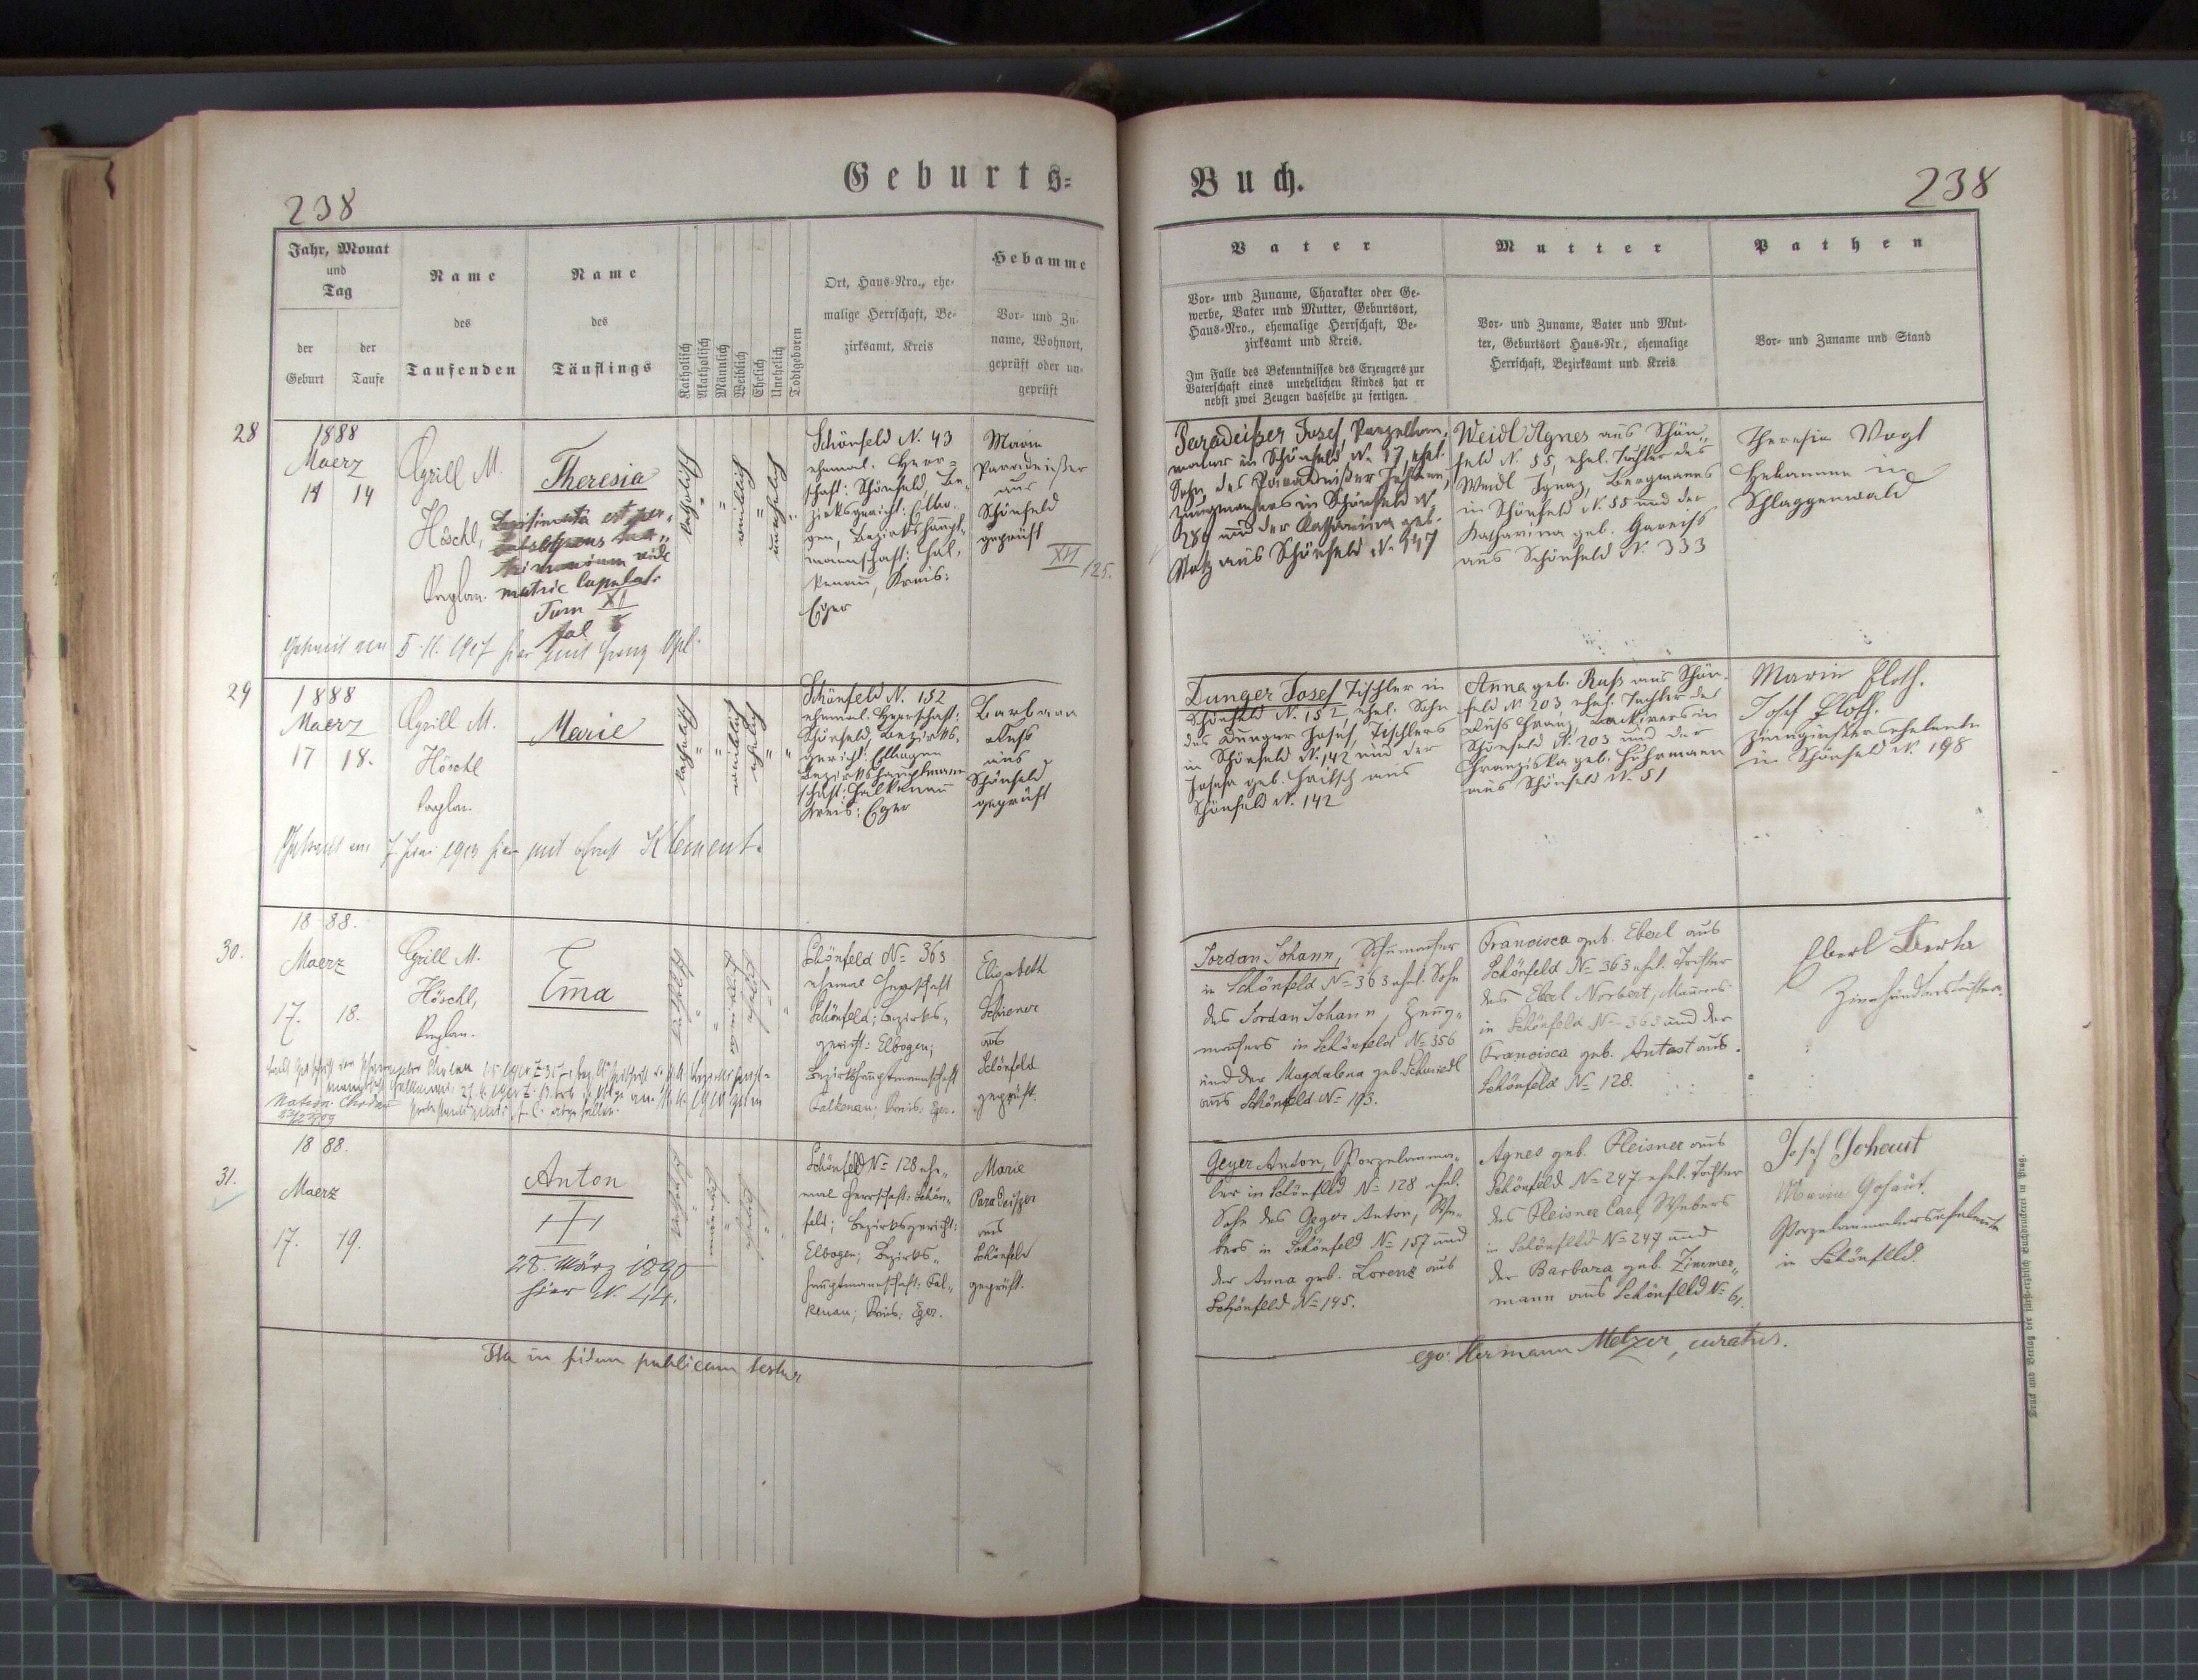 Geburts-
Buch.
238
238
Jahr, Monat
und
Tag
der
Geburt
der
Taufe
Name
des
Taufenden
Name
des
Täuflings
Katholisch
Akatholisch
Männlich
Weiblich
Ehelich
Unehelich
Todtgeboren
Ort, Haus-Nro., ehe-
malige Herrschaft, Be-
zirksamt, Kreis
Hebamme
Vor- und Zu-
name, Wohnort,
geprüft oder un-
geprüft
Vater
Vor- und Zuname, Charakter oder Ge-
werbe, Vater und Mutter, Geburtsort,
Haus-Nro., ehemalige Herrschaft, Be-
zirksamt und Kreis.
Im Falle des Bekenntnisses des Erzeugers zur
Vaterschaft eines unehelichen Kindes hat er
nebst zwei Zeugen dasselbe zu fertigen.
Mutter
Vor- und Zuname, Vater und Mut-
ter, Geburtsort Haus-Nr., ehemalige
Herrschaft, Bezirksamt und Kreis
Pathen
Vor- und Zuname und Stand
28
1888
Maerz
14 14
Grill M.
Höschl,
Kaplan.
Theresia
matric copulat.
Tom XI
fol
katholisch
weiblich
unehelich
Schönfeld N. 43
ehemal. Herr-
schaft: Schönfeld, Be-
zirksgericht: Elbo-
gen, Bezirkshaupt-
mannschaft: Fal-
kenau, Kreis:
Eger
Maria
Paradeißer
aus
Schönfeld
geprüft
XVI/25.
Paradeißer Josef, Porzellan-
maler in Schönfeld N. 97, ehel.
Sohn des Paradeißer
Zeugmachers in Schönfeld N.
284 und der Katharina geb.
aus Schönfeld N. 347
Weidl Agnes aus Schön-
feld N. 55, ehel. Tochter des
Weidl Ignaz, Bergmanns
in Schönfeld N. 55 und der
Katharina geb. Gareiß
aus Schönfeld N. 333
Theresia Vogl
Hebamme in
Schlaggenwald
Getraut am 5. 11. 1907 hier mit Franz
29
1888
Maerz
17 18.
Grill M.
Höschl
Kaplan.
Marie
katholisch
weiblich
ehelich
Schönfeld N. 152
ehemal. Herrschaft:
Schönfeld, Bezirks-
gericht: Elbogen
Bezirkshauptmann-
schaft: Falkenau
Kreis: Eger
Barbara
Russ
aus
Schönfeld
geprüft
Dunger Josef Tischler in
Schönfeld N. 152, ehel. Sohn
des Dunger Josef, Tischlers
in Schönfeld N. 142 und der
Josefa geb. Fritsch aus
Schönfeld N. 142
Anna geb. Russ aus Schön-
feld N. 203, ehel. Tochter des
Russ Franz, Lackirers in
Schönfeld N. 203 und der
Franziska geb. Fuhrmann
aus Schönfeld N. 51
Maria Ploth.
Josef Ploth.
Zinngießerseheleute
in Schönfeld N. 198
Getraut am 7. Juni 1913 hier mit Ernst Klement.
30.
1888.
Maerz
17. 18.
Grill M.
Höschl,
Kaplan.
Ema
katholisch
weiblich
ehelich
Schönfeld N= 363
ehemal Herrschaft
Schönfeld; Bezirks-
gericht: Elbogen;
Bezirkshauptmannschaft
Falkenau; Kreis: Eger.
Elisabeth
Schiener
aus
Schönfeld
geprüft.
Jordan Johann, Schumacher
in Schönfeld N= 363 ehel. Sohn
des Jordan Johann, Zeug-
machers in Schönfeld N= 356
und der Magdalena geb. Schmiedl
aus Schönfeld N= 193.
Francisca geb. Eberl aus
Schönfeld N= 363 ehel. Tochter
des Eberl Norbert, Maurers
in Schönfeld N= 363 und der
Francisca geb. Antost aus
Schönfeld N= 128.
Eberl Berta
Zinnhändlerstochter.
31.
1888.
Maerz
17. 19.
Anton
28. März 1890
hier N. 44.
katholisch
männlich
ehelich
Schönfeld N= 128 ehe-
mal Herrschaft: Schön-
feld; Bezirksgericht:
Elbogen; Bezirks-
hauptmannschaft: Fal-
kenau; Kreis: Eger.
Marie
Paradeißer
aus
Schönfeld
geprüft.
Geyer Anton, Porzelanma-
ler in Schönfeld N= 128 ehel.
Sohn des Geyer Anton, We-
bers in Schönfeld N= 157 und
der Anna geb. Lorenz aus
Schönfeld N= 145.
Agnes geb. Pleisner aus
Schönfeld N= 247 ehel. Tochter
des Pleisner Carl, Webers
in Schönfeld N= 247 und
der Barbara geb. Zimmer-
mann aus Schönfeld N= 61.
Josef Gohaut
Maria Gohaut.
Porzelanmalerseheleute
in Schönfeld.
Ita in fidem publicam testor
ego: Hermann Melzer, curatus.
Druck und Verlag der fürst-erzbisch Buchdruckerei in Prag.